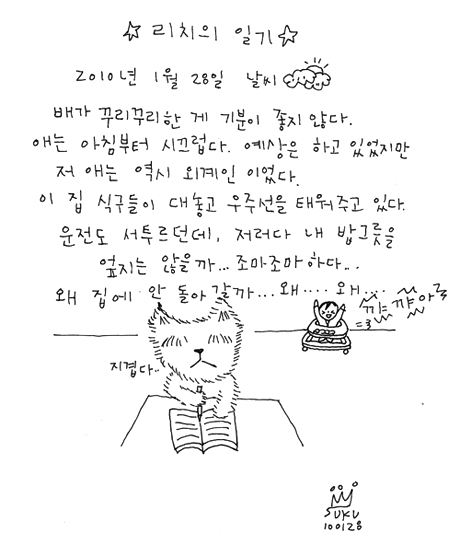 ☆ 리치의 일기 ☆
2010년 1월 28일 날씨
배가 꾸리꾸리한 게 기분이 좋지 않다.
애는 아침부터 시끄럽다. 예상은 하고 있었지만
저 애는 역시 외계인 이었다.
이 집 식구들이 대놓고 우주선을 태워주고 있다.
운전도 서투르던데, 저러다 내 밥그릇을
엎지는 않을까... 조마조마하다...
왜 집에 안 돌아 갈까... 왜.... 왜....
꺄 꺄아
지겹다..
SUKU
100128